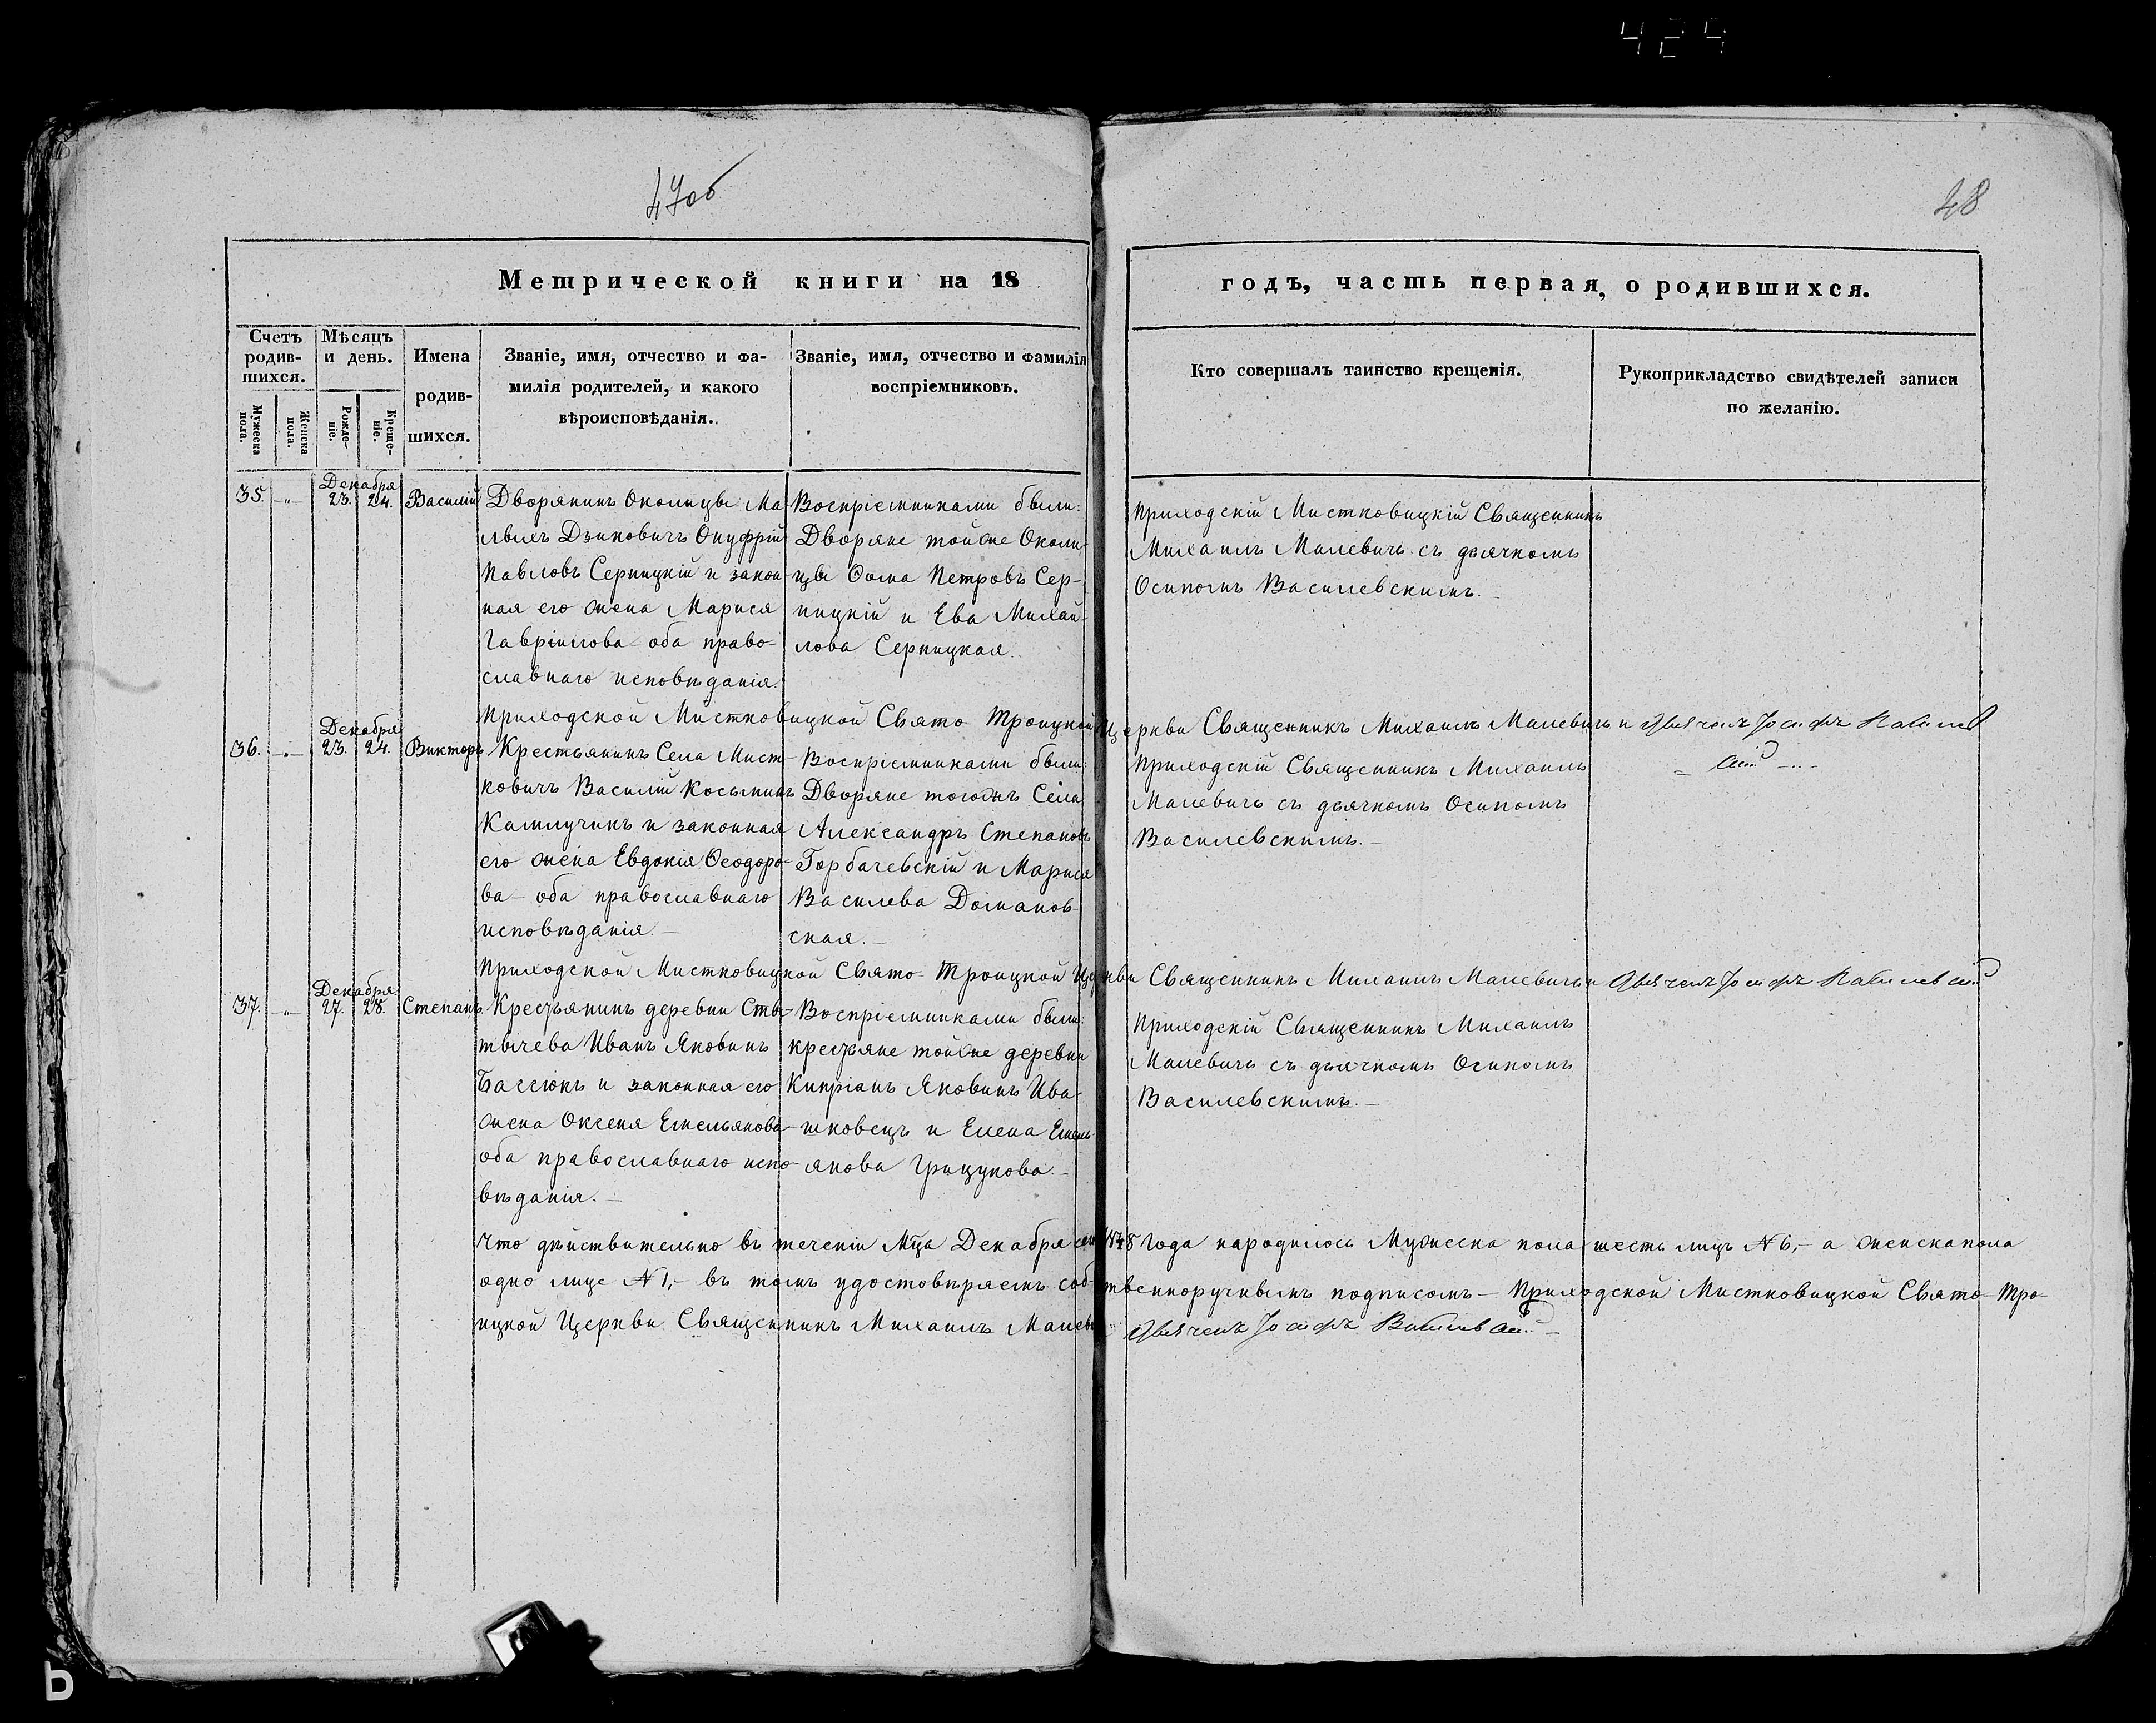 424
47об
48
Метрической книги на 18
годъ, часть первая, о родившихся.
Счетъ родив-шихся.
Мужеска пола.
Женска пола.
Мѣсяцъ и день.
Рожде-ніе.
Креще-ніе.
Имена родив-шихся.
Званіе, имя, отчество и фа-
милія родителей, и какого
вѣроисповѣданія.
Званіе, имя, отчество и фамилія
воспріемниковъ.
Кто совершалъ таинство крещенія.
Рукоприкладство свидѣтелей записи
по желанію.
Декабря
35. -"- 23. 24. Василій
Дворянинъ Околицы Ма
лыхъ Дзиковичъ Онуфрій
Павловъ Серницкій и закон-
ная его жена Марися
Гавріилова оба право-
славнаго исповѣданія.
Воспріемниками были:
Дворяне тойже Околи-
цы Ѳома Петровъ Сер-
ницкій и Ева Михай-
лова Серницкая.
Приходскій Мистковицкій Священникъ
Михаилъ Малевичъ съ дьячкомъ
Осипомъ Василевскимъ.
Приходской Мистковицкой Свято Троицкой Церкви Священникъ Михаилъ Малевичъ и
Декабря
36. -"- 23. 24. Викторъ
Крестьянинъ Села Мист-
ковичъ Василій Косьминъ
Камлучикъ и законная
его жена Евдокія Ѳеодоро-
ва - оба православнаго
исповѣданія. -
Воспріемниками были:
Дворяне тогожъ Села
Александръ Степановъ
Горбачевскій и Марися
Василева Доманов-
ская. -
Приходскій Священникъ Михаилъ
Малевичъ съ дьячкомъ Осипомъ
Василевскимъ. -
Приходской Мистковицкой Свято-Троицкой Церкви Священникъ Михаилъ Малевичъ и
Декабря
37. -"- 27. 28. Степанъ
Крестьянинъ деревни Ста-
тычева Иванъ Яковинъ
Бассюкъ и законная его
жена Оксеня Емельянова-
оба православнаго испо-
вѣданія. -
Воспріемниками были:
крестьяне тойже деревни
Кипріанъ Яковинъ Ива-
шковецъ и Елена Емель-
янова Грицукова. -
Приходскій Священникъ Михаилъ
Малевичъ съ дьячкомъ Осипомъ
Василевскимъ. -
Что дѣйствительно въ теченіи Мца Декабря сего 1848 года народилось Мужеска пола шесть лицъ N 6, - а женска пола
одно лице N 1, - въ томъ удостовѣряемъ собственноручнымъ подписомъ - Приходской Мистковицкой Свято-Тро-
ицкой Церкви Священникъ Михаилъ Малевичъ